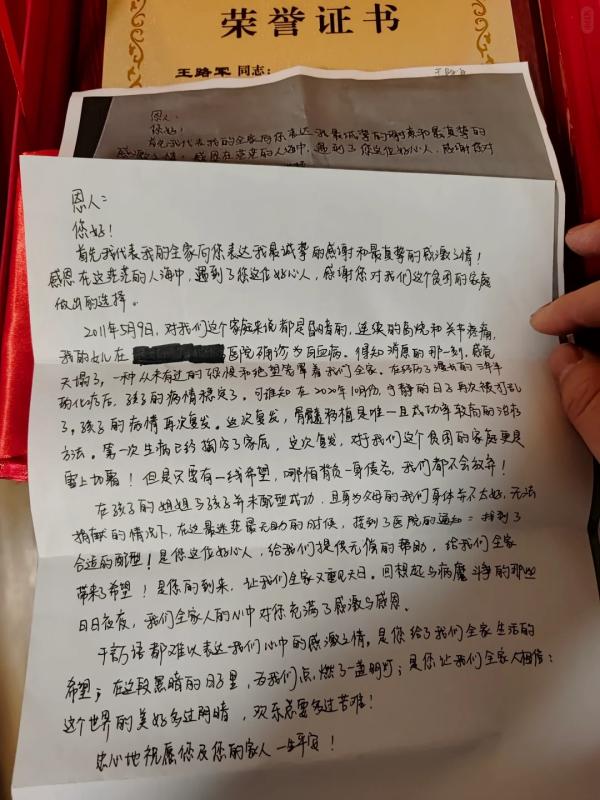 荣誉证书
王路军 同志：
恩人：
您好！
首先我代表我的全家向您表达我最诚挚的感谢和最真挚的
感激之情！感恩在这茫茫的人海中，遇到了您这位好心人，感谢您对
恩人：
您好！
首先我代表我的全家向您表达我最诚挚的感谢和最真挚的感激之情！
感恩在这茫茫的人海中，遇到了您这位好心人，感谢您对我们这个贫困的家庭
做出的选择。
2011年5月9日，对我们这个家庭来说都是昏暗的，连续的高烧和关节疼痛，
我的女儿在 医院确诊为白血病。得知消息的那一刻，感觉
天塌了，一种从未有过的恐惧和绝望笼罩着我们全家。在经历了漫长的三年半
的化疗后，孩子的病情稳定了。可谁知在2020年10月份，宁静的日子再次被打乱
了，孩子的病情再次复发。这次复发，骨髓移植是唯一且成功率较高的治疗
方法。第一次生病已经掏空了家底，这次复发，对我们这个贫困的家庭更是
雪上加霜！但是只要有一线希望，哪怕背负一身债务，我们都不会放弃！
在孩子的姐姐与孩子并未配型成功，且身为父母的我们身体每不太好，无法
捐献的情况下，在这最迷茫最无助的时候，接到了医院的通知：找到了
合适的配型！是您这位好心人，给我们提供无偿的帮助，给我们全家
带来了希望！是您的到来，让我们全家又重见天日。回想起与病魔斗争的那些
日日夜夜，我们全家人的心中对您充满了感激与感恩。
千言万语都难以表达我们心中的感激之情。是您给了我们全家生活的
希望；在这段黑暗的日子里，为我们点燃了一盏明灯；是您让我们全家人相信：
这个世界的美好多过阴暗，欢乐总要多过苦难！
忠心地祝愿您及您的家人一生平安！